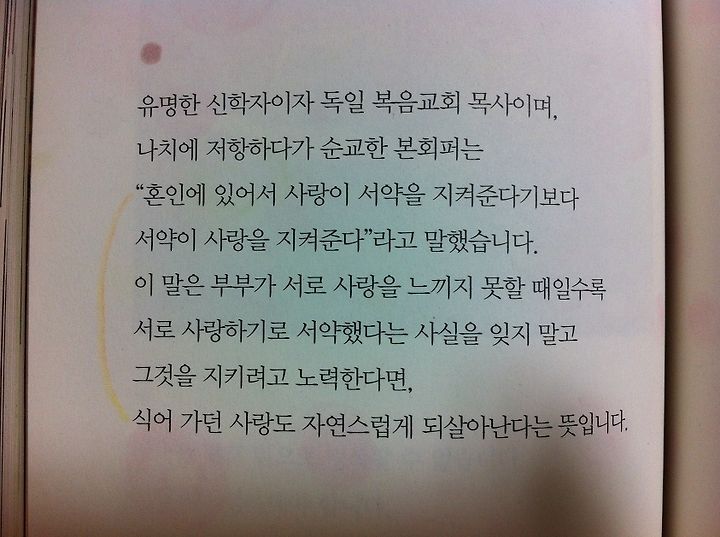 유명한 신학자이자 독일 복음교회 목사이며,
나치에 저항하다가 순교한 본회퍼는
“혼인에 있어서 사랑이 서약을 지켜준다기보다
서약이 사랑을 지켜준다”라고 말했습니다.
이 말은 부부가 서로 사랑을 느끼지 못할 때일수록
서로 사랑하기로 서약했다는 사실을 잊지 말고
그것을 지키려고 노력한다면,
식어 가던 사랑도 자연스럽게 되살아난다는 뜻입니다.